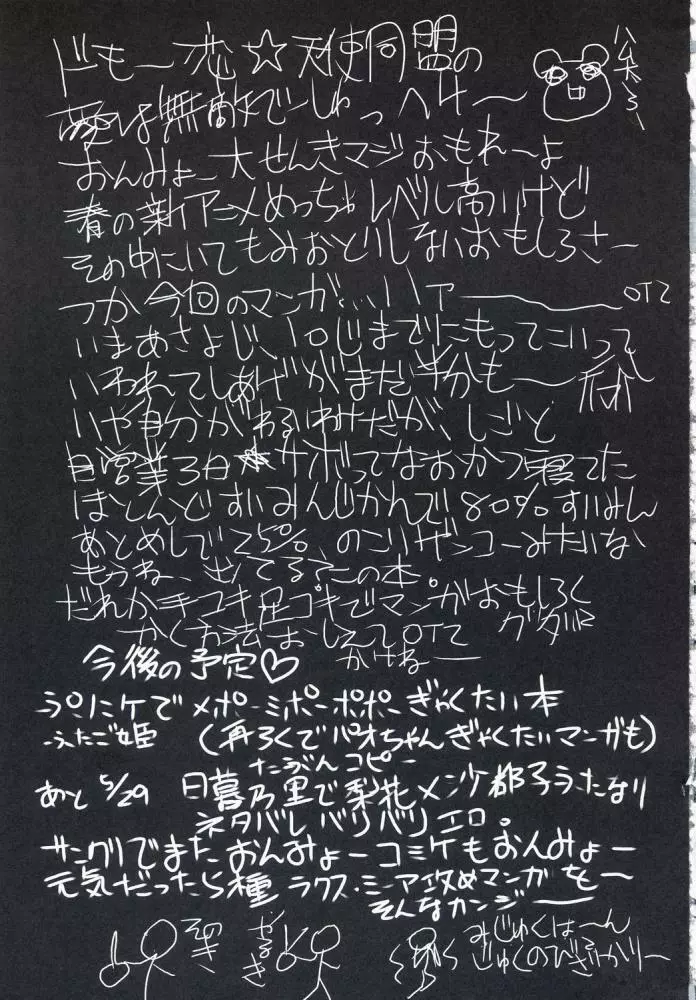 ドもー恋☆天使同盟の
愛は無敵でーしゅっへけ〜
おんみょー大せんきマジおもれーよ
春の新アニメめっちゃレベル高いけど
その中にいてもみおとりしないおもしろさー
つか今回のマンガ…ハァー OTZ
いまあさよじ、10じまでにもってこいって
いわれてしあげがまだ半分も〜
いや自分がわるいわけだが、しごと
自営業3日サボってなおかつ寝てた
ほとんどすいみんじかんで80%すいみん
あとめしで25% のこりザンコーみたいな
もうね、出てる?この本。
だれか手コキ足コキでマンガおもしろく
かく方法おしえてOTZ グダリ
かけねー
今後の予定♡
ぷにケでメポーミポーポポーぎゃくたい本
ふたご姫 (再ろくでパオちゃんぎゃくたいマンガも)
たぶんコピー
あと5/29 日暮乃里で梨花メンケ都子ふたなり
ネタバレバリバリエロ。
サングリでまたおんみょーコミケもおんみょー
元気だったら種 ラクス・ミーア攻めマンガを〜
そんなカンジー
そのき
やるき
みじゅくはーん
じゅくのびざかりー